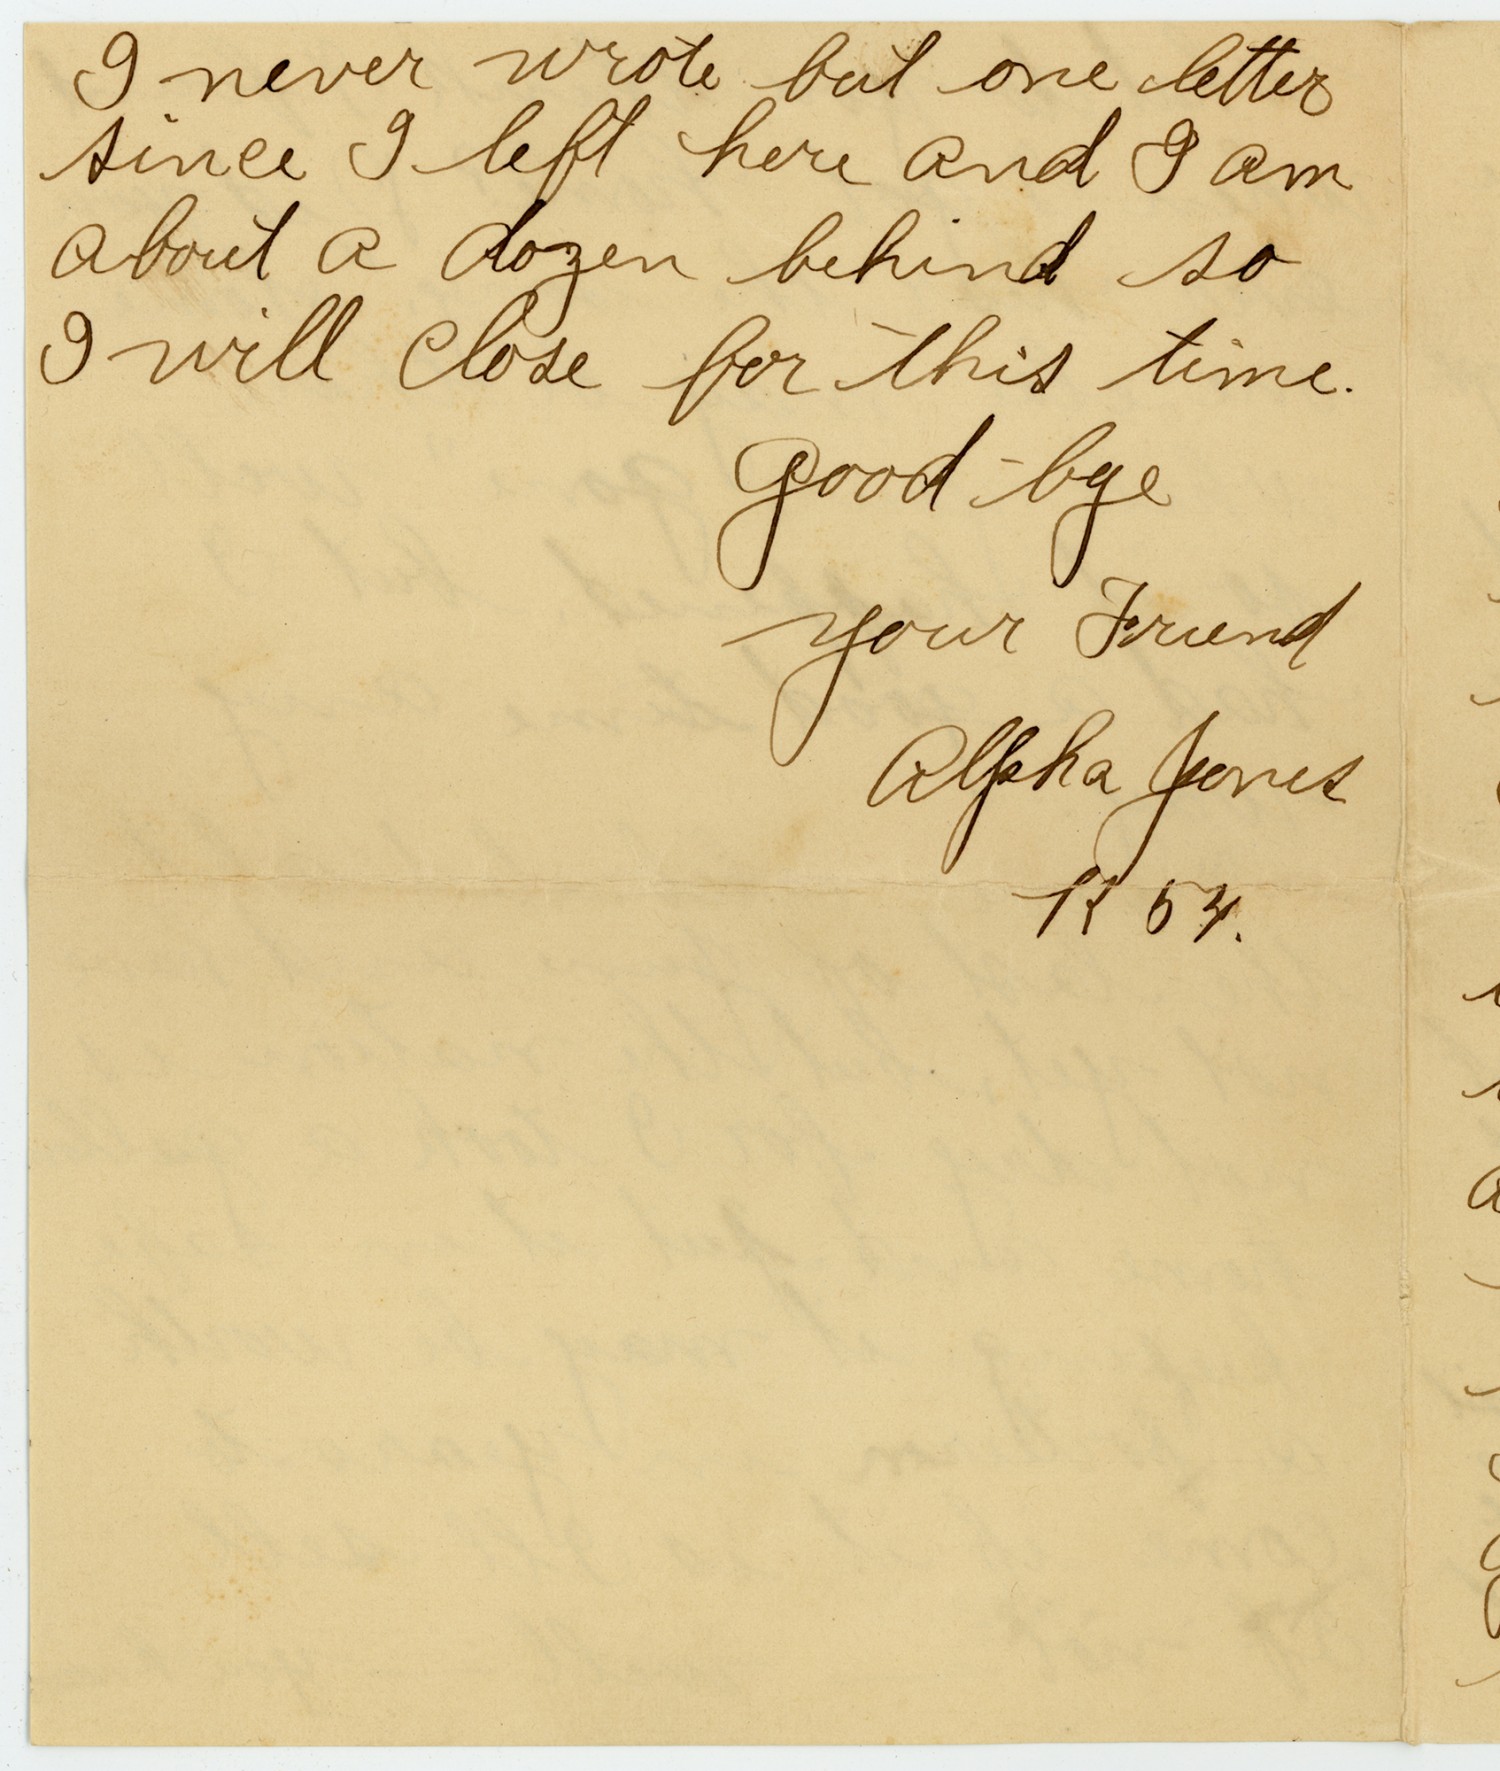 I never wrote but one letter
since I left here and I am
about a dozen behind so
I will close for this time.
Good-bye
Your Friend
Alpha Jones
54.